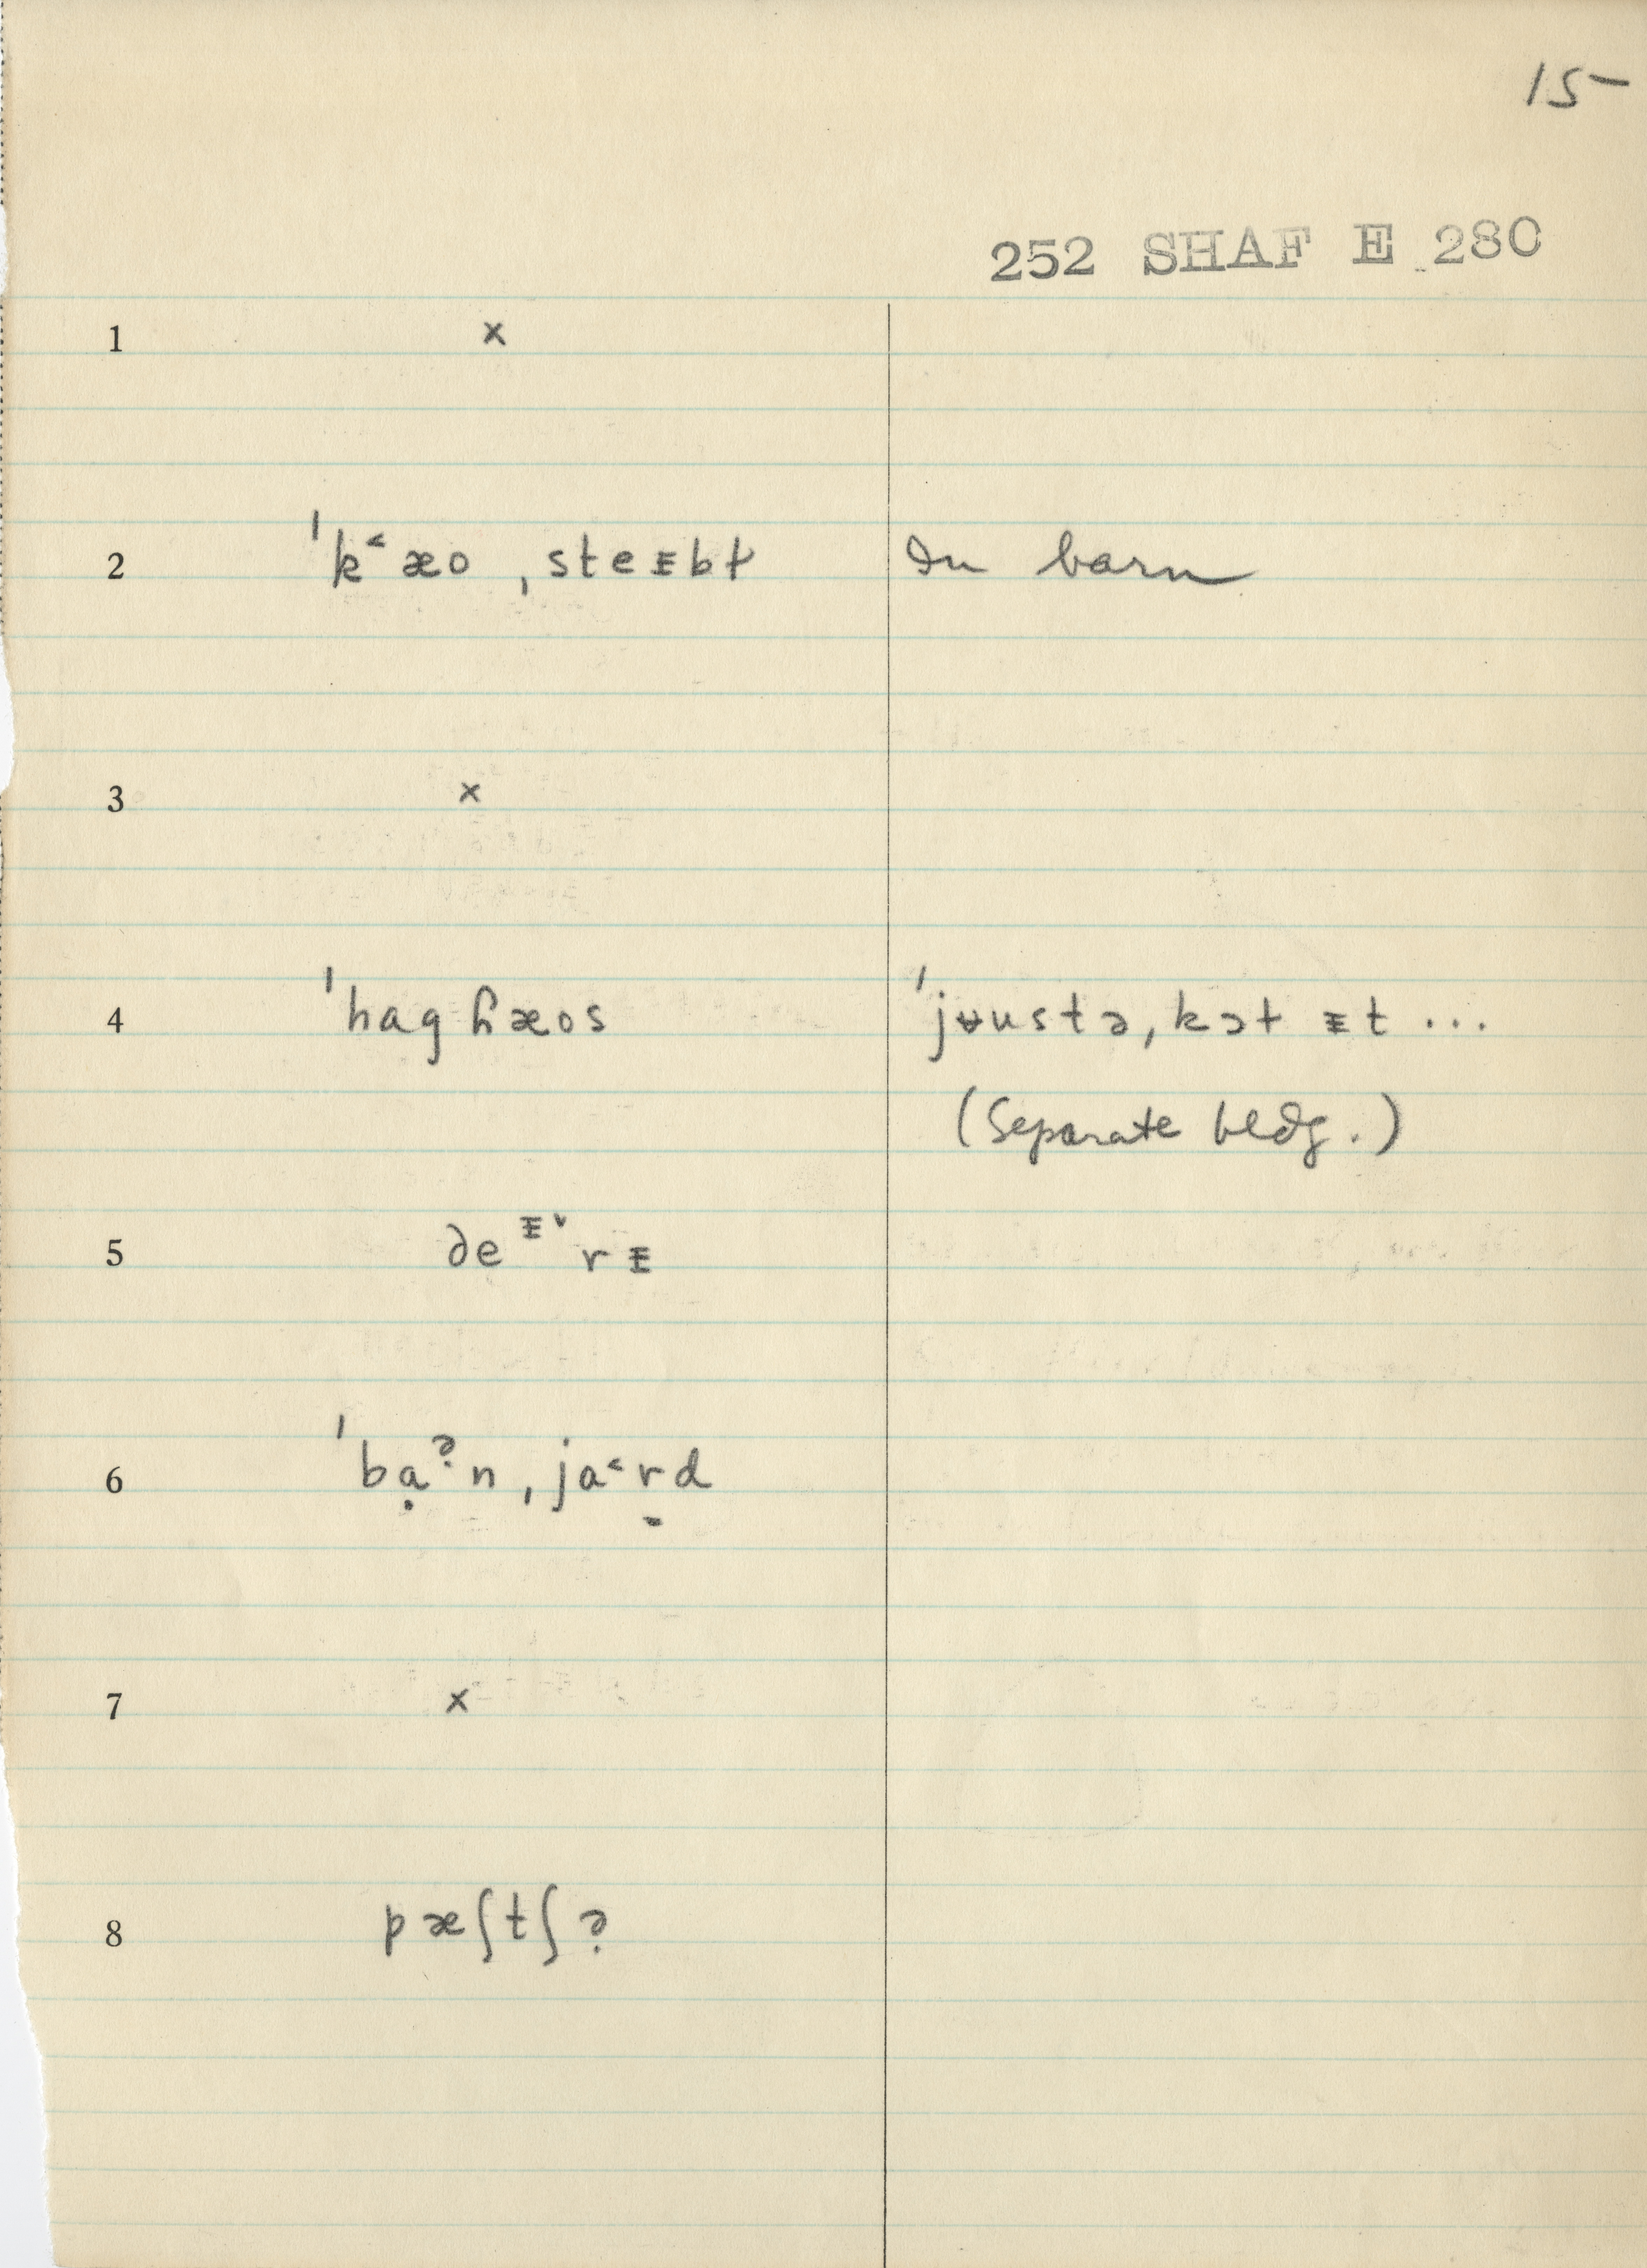 15
252 SHAF E 280
1 x
2 ˈk˂æo ˌsteᵻbɫ In barn
3 x
4 ˈhagɦæos ˈjʉustə ˌkɔɫ ᵻt ...
(Separate bldg.)
5 deᵻ˅rᵻ
6 ˈbạɚn ˌja˂r̠d
7 x
8 pæʃtʃɚ